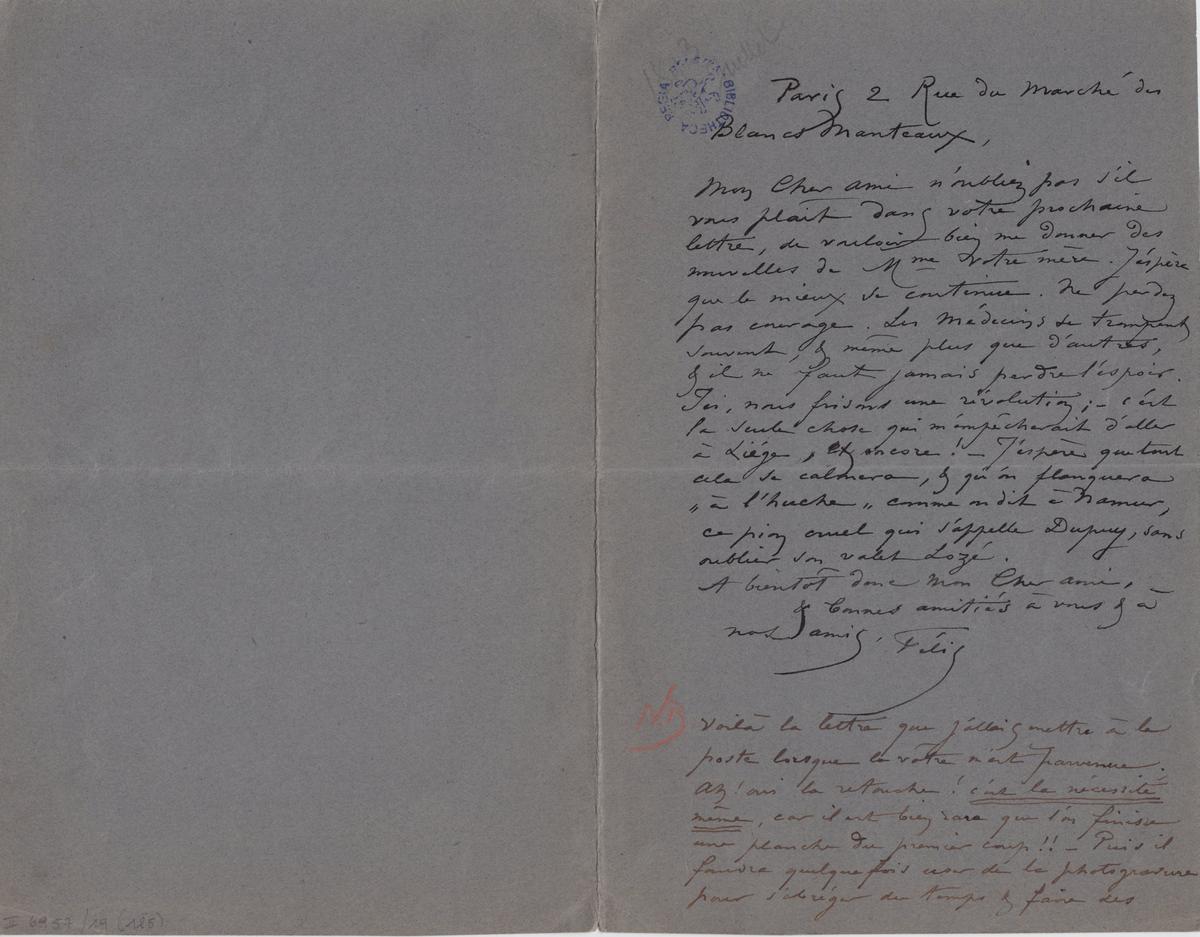 BIBLIOTHECA REGIA
Paris 2 Rue du Marché des
Blancs Manteaux,
Mon Cher ami n'oubliez pas s'il
vous plait dans votre prochaine
lettre, de vouloir bien me donner des
nouvelles de Mme Votre mère. J'éspère
que le mieux se continue. Ne perdez
pas courage. Les Médecins se trompent
souvent, & même plus que d'autres,
& il ne faut jamais perdre l'éspoir.
Ici, nous frisons une révolution; – c'est
la seule chose qui m'empêcherait d'aller
à Liége, et encore! – J'éspère que tout
cela se calmera, & qu'on flanquera
„à l'huche„ comme on dit à Namur,
ce pion cruel qui s'appelle Dupuy, sans
oublier son valet Lozé.
A bientôt donc Mon Cher ami, –
& bonnes amitiés à vous & à
nos amis. Félis
NB
Voilà la lettre que j'allais mettre à la
poste lorsque la vôtre m'est parvenue.
Ah! oui la retouche! c'est la nécessité
même, car il est bien rare que l'on finisse
une planche du premier coup!! – Puis il
faudra quelquefois user de la photogravure
pour s'abréger du temps & faire des
II 6957/19 (185)